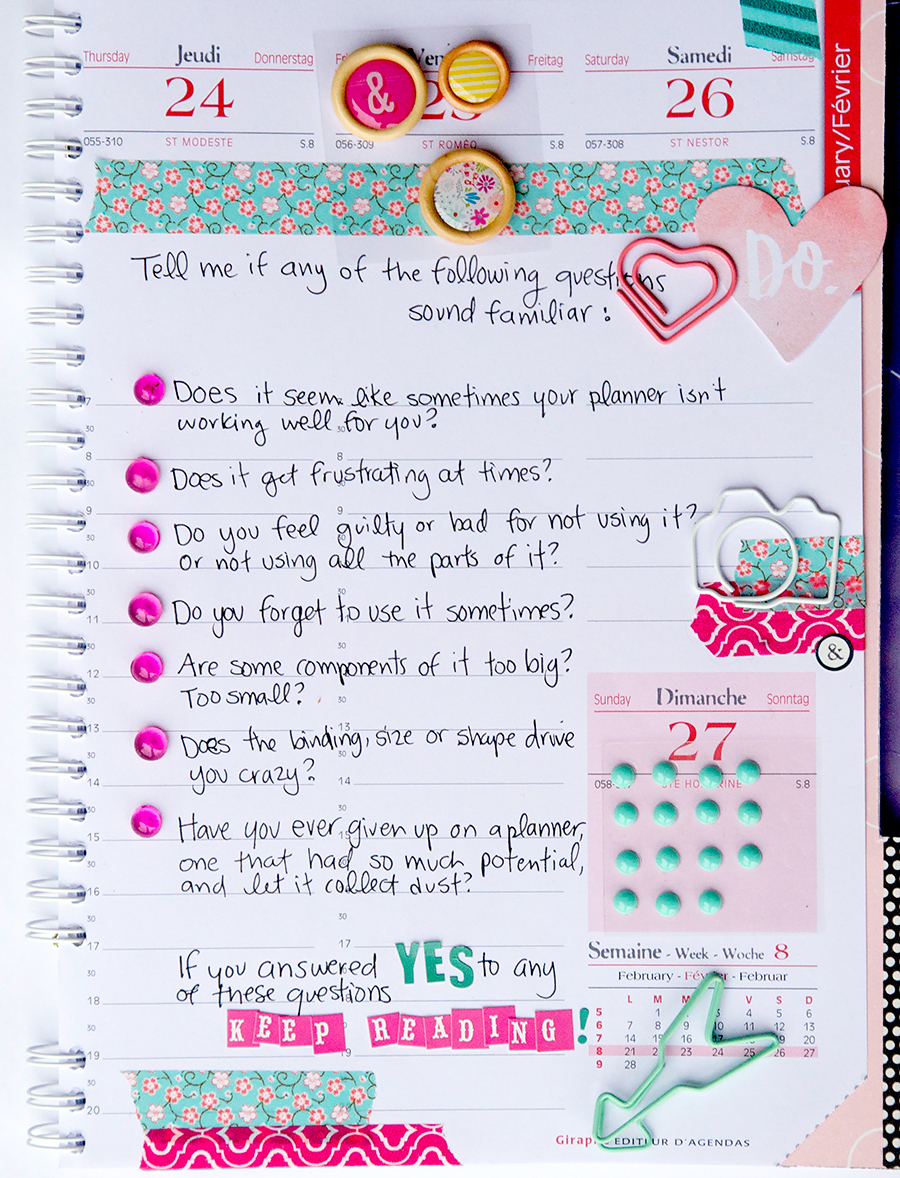 Thursday Jeudi Donnerstag
24
055-310 ST MODESTE S.8
& Freitag
056-309 ST ROMÉO S.8
Saturday Samedi Samstag
26
057-308 ST NESTOR S.8
uary/Février
Do.
Tell me if any of the following questions
sound familiar:
Does it seem like sometimes your planner isn't
working well for you?
Does it get frustrating at times?
Do you feel guilty or bad for not using it?
or not using all the parts of it?
Do you forget to use it sometimes?
Are some components of it too big?
Too small?
Does the binding, size or shape drive
you crazy?
Have you ever given up on a planner,
one that had so much potential,
and let it collect dust?
If you answered YES to any
of these questions
KEEP READING!
7
30
8
9
10
11
12
13
14
15
16
17
18
19
20
&
Sunday Dimanche Sonntag
27
S.8
Semaine - Week - Woche 8
February - Février - Februar
L M M V S D
5 1 4 5 6
6 7 8 9 11 12 13
7 14 16 17 18 20
8 21 23 24 25 26 27
9 28
EDITEUR D'AGENDAS